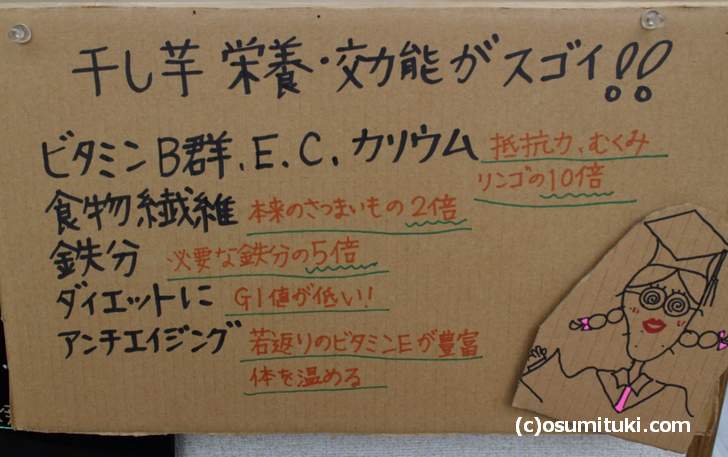 干し芋 栄養・効能がスゴイ!!
ビタミンB群、E、C、カリウム 抵抗力、むくみ
リンゴの10倍
食物繊維 本来のさつまいもの2倍
鉄分 必要な鉄分の5倍
ダイエットに GI値が低い!
アンチエイジング 若返りのビタミンEが豊富
体を温める
(c)osumituki.com